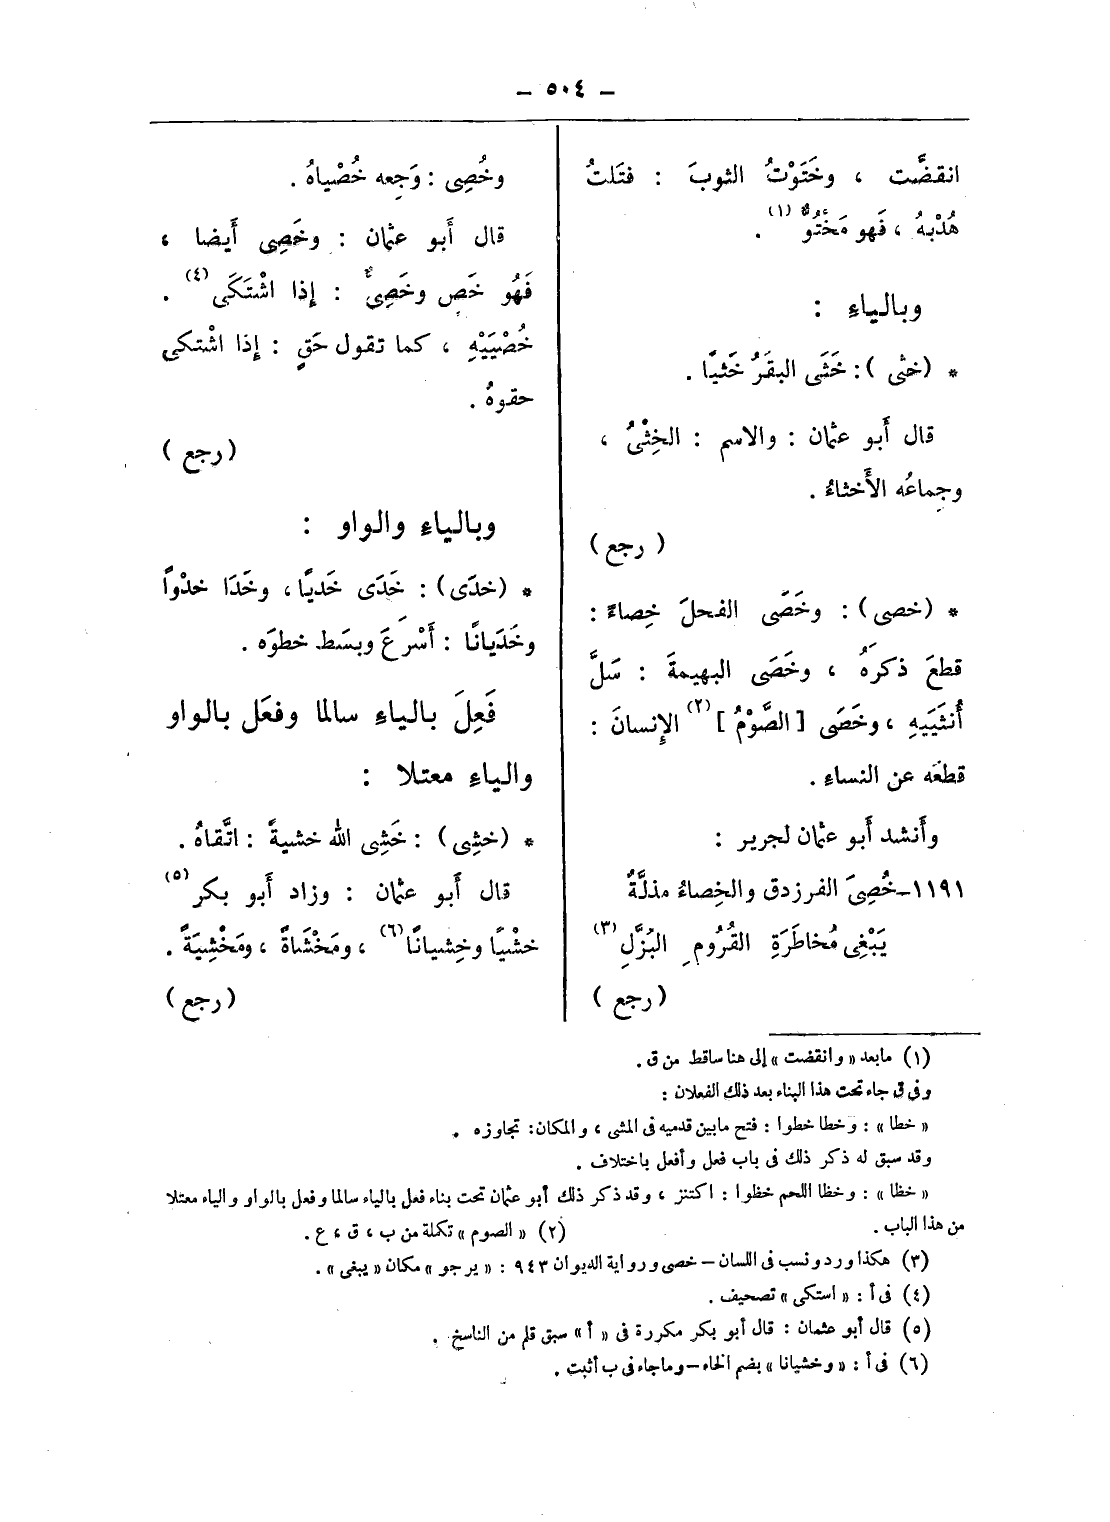 – ٥٠٤ –
انقضَّت ، وخَتَوْتُ الثوبَ : فتَلتُ
هُدْبهُ ، فَهو مَخْتُوٌّ (١) .
وبالياءِ :
* (خثى ) : خَثَى البقَرُ خَثيًا .
قال أَبو عثمان : والاسم : الخِثْىُ ،
وجِماعُه الأَخثاءُ .
( رجع )
* (خصى) : وخَصَى الفحلَ خِصاءً :
قطعَ ذكرَهُ ، وخَصَى البهيمةَ : سَلَّ
أُنثَيَيهِ ، وخَصَى [ الصَّوْمُ ] (٢) الإِنسانَ :
قطعَه عن النساءِ .
وأَنشد أَبو عثمان لجرير :
١١٩١–خُصِىَ الفرزدق والخِصاءُ مذلَّةٌ
يَبْغِى مُخاطَرَةِ القُرُومِ البُزَّلِ (٣)
( رجع )
وخُصِى : وَجعه خُصْياهُ .
قال أَبو عثمان : وخَصِى أَيضا ،
فَهُو خَصٍ وخَصِىٌّ : إِذا اشْتَكَى (٤) .
خُصْيَيْهِ ، كما تقول حَقٍ : إِذا اشْتكى
حقوهُ .
( رجع )
وبالياءِ والواو :
* (خدَى) : خَدَى خَديًا ، وخَدَا خدْواً
وخَدَيانًا : أَسْرَعَ وبسَط خطوَه .
فَعِلَ بالياءِ سالما وفعَل بالواو
والياءِ معتلا :
* (خشِى) : خَشِى الله خشيةً : اتَّقاهُ .
قال أَبو عثمان : وزاد أَبو بكر (٥)
خشْيًا وخِشيانًا (٦) ، ومَخْشَاةً ، ومَخْشِيَةً .
( رجع )
(١) مابعد « وانقضت » إلى هنا ساقط من ق .
وفى ق جاء تحت هذا البناء بعد ذلك الفعلان :
« خطا » : وخطا خطوا : فتح مابين قدميه فى المشى ، والمكان : تجاوزه .
وقد سبق له ذكر ذلك فى باب فعل وأفعل باختلاف .
« خظا » : وخظا اللحم خظوا : اكتنز ، وقد ذكر ذلك أبو عثمان تحت بناء فعل بالياء سالما وفعل بالواو والياء معتلا
من هذا الباب . (٢) « الصوم » تكملة من ب ، ق ، ع .
(٣) هكذا ورد ونسب فى اللسان – خصى ورواية الديوان ٩٤٣ : « يرجو » مكان « يبغى » .
(٤) فى أ : « استكى » تصحيف .
(٥) قال أبو عثمان : قال أبو بكر مكررة فى « أ » سبق قلم من الناسخ .
(٦) فى أ : « وخشيانا » بضم الخاء – وماجاء فى ب أثبت .